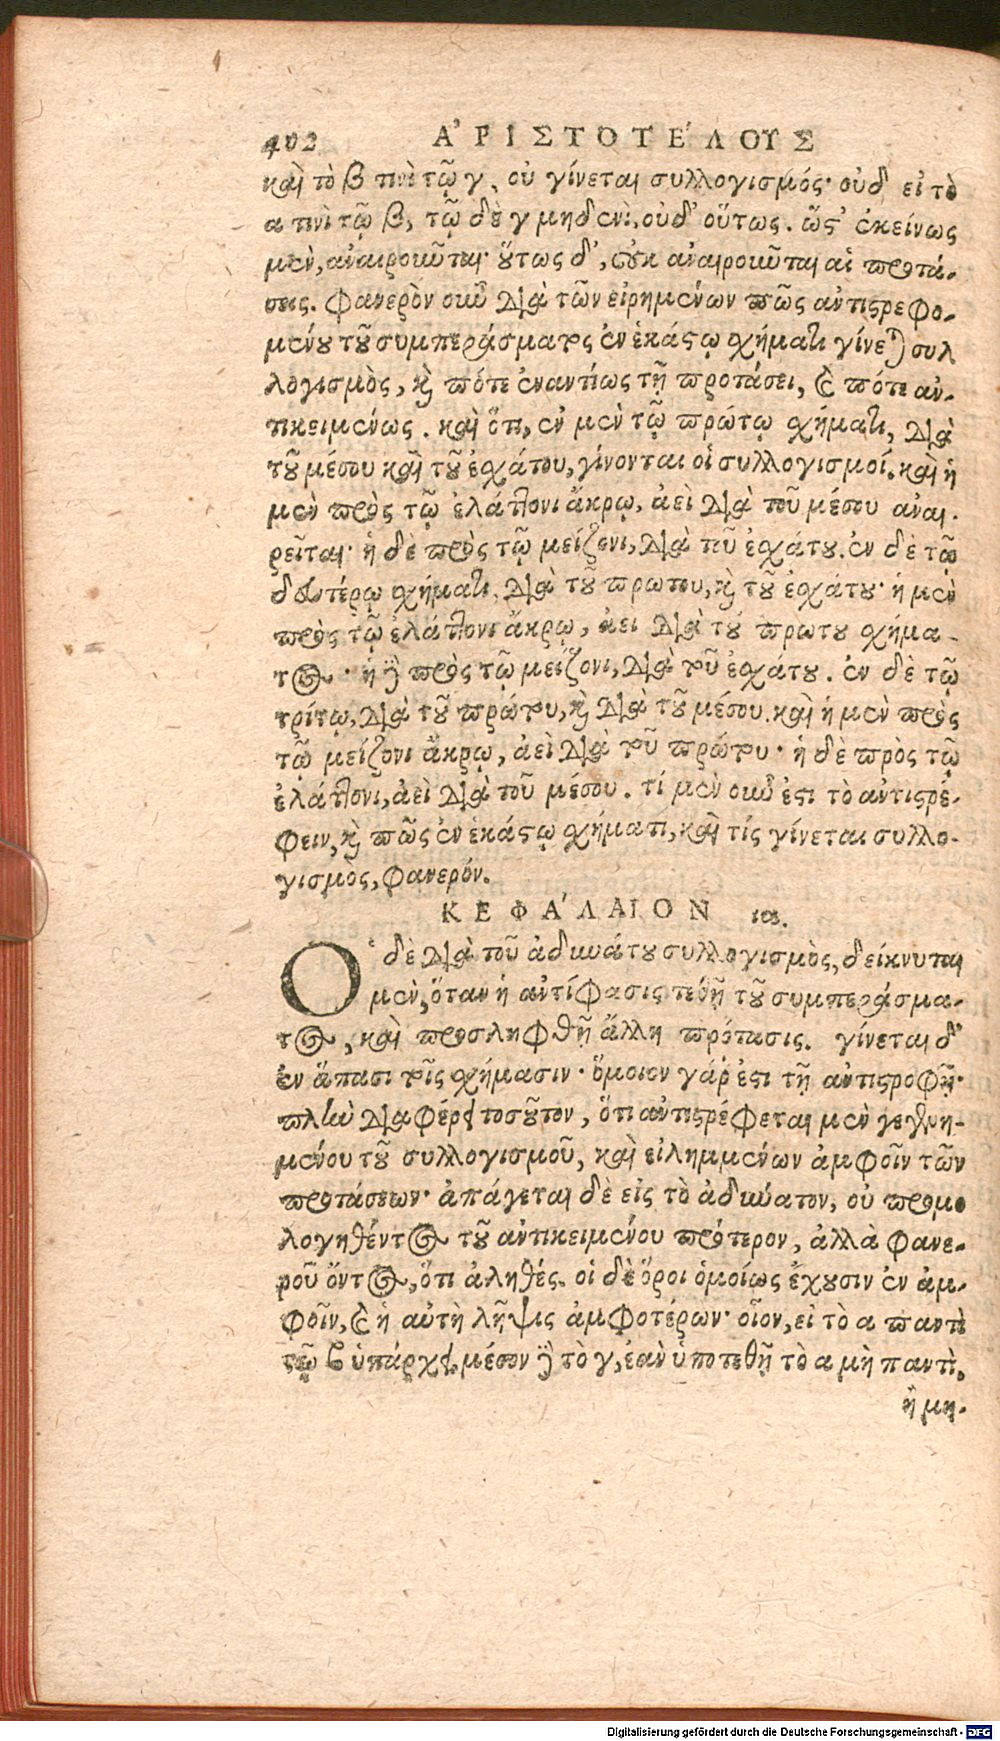 402 ΑʼΡΙΣΤΟΤΕʹΛΟΥΣ
καὶ τὸ β τινὶ τῷ γ, οὐ γίνεται συλλογισμός· οὐδʼ εἰ τὸ
α τινὶ τῷ β, τῷ δὲ γ μηδενὶ, οὐδʼ οὕτως. ὥστʼ ἐκείνως
μὲν, ἀναιροῦνται· οὕτως δʼ, οὐκ ἀναιροῦνται αἱ προτά-
σεις. φανερὸν οὖν διὰ τῶν εἰρημένων πῶς ἀντιστρεφο-
μένου τοῦ συμπεράσματος ἐν ἑκάστῳ σχήματι γίνεται συλ
λογισμὸς, καὶ πότε ἐναντίως τῇ προτάσει, καὶ πότε ἀν-
τικειμένως. καὶ ὅτι, ἐν μὲν τῷ πρώτῳ σχήματι, διὰ
τοῦ μέσου καὶ τοῦ ἐσχάτου, γίνονται οἱ συλλογισμοί. καὶ ἡ
μὲν πρὸς τῷ ἐλάττονι ἄκρῳ, ἀεὶ διὰ τοῦ μέσου ἀναι-
ρεῖται· ἡ δὲ πρὸς τῷ μείζονι, διὰ τοῦ ἐσχάτου. ἐν δὲ τῷ
δευτέρῳ σχήματι, διὰ τοῦ πρώτου, καὶ τοῦ ἐσχάτου· ἡ μὲν
πρὸς τῷ ἐλάττονι ἄκρῳ, ἀεὶ διὰ τοῦ πρώτου σχήμα-
τος· ἡ δὲ πρὸς τῷ μείζονι, διὰ τοῦ ἐσχάτου. ἐν δὲ τῷ
τρίτῳ, διὰ τοῦ πρώτου, καὶ διὰ τοῦ μέσου. καὶ ἡ μὲν πρὸς
τῷ μείζονι ἄκρῳ, ἀεὶ διὰ τοῦ πρώτου· ἡ δὲ πρὸς τῷ
ἐλάττονι, ἀεὶ διὰ τοῦ μέσου. τί μὲν οὖν ἐστι τὸ ἀντιστρέ-
φειν, καὶ πῶς ἐν ἑκάστῳ σχήματι, καὶ τίς γίνεται συλλο-
γισμὸς, φανερόν.
ΚΕΦΑʹΛΑΙΟΝ ια.
Ὁ δὲ διὰ τοῦ ἀδυνάτου συλλογισμὸς, δείκνυται
μὲν, ὅταν ἡ ἀντίφασις τεθῇ τοῦ συμπεράσμα-
τος, καὶ προσληφθῇ ἄλλη πρότασις. γίνεται δʼ
ἐν ἅπασι τοῖς σχήμασιν· ὅμοιον γάρ ἐστι τῇ ἀντιστροφῇ·
πλὴν διαφέρει τοσοῦτον, ὅτι ἀντιστρέφεται μὲν γεγενη-
μένου τοῦ συλλογισμοῦ, καὶ εἰλημμένων ἀμφοῖν τῶν
προτάσεων· ἀπάγεται δὲ εἰς τὸ ἀδύνατον, οὐ προομο
λογηθέντος τοῦ ἀντικειμένου πρότερον, ἀλλὰ φανε-
ροῦ ὄντος, ὅτι ἀληθές. οἱ δὲ ὅροι ὁμοίως ἔχουσιν ἐν ἀμ-
φοῖν, καὶ ἡ αὐτὴ λῆψις ἀμφοτέρων· οἷον, εἰ τὸ α παντὶ
τῷ β ὑπάρχει, μέσον δὲ τὸ γ, ἐὰν ὑποτεθῇ τὸ α μὴ παντὶ,
ἢ μη-
Digitalisierung gefördert durch die Deutsche Forschungsgemeinschaft - DFG